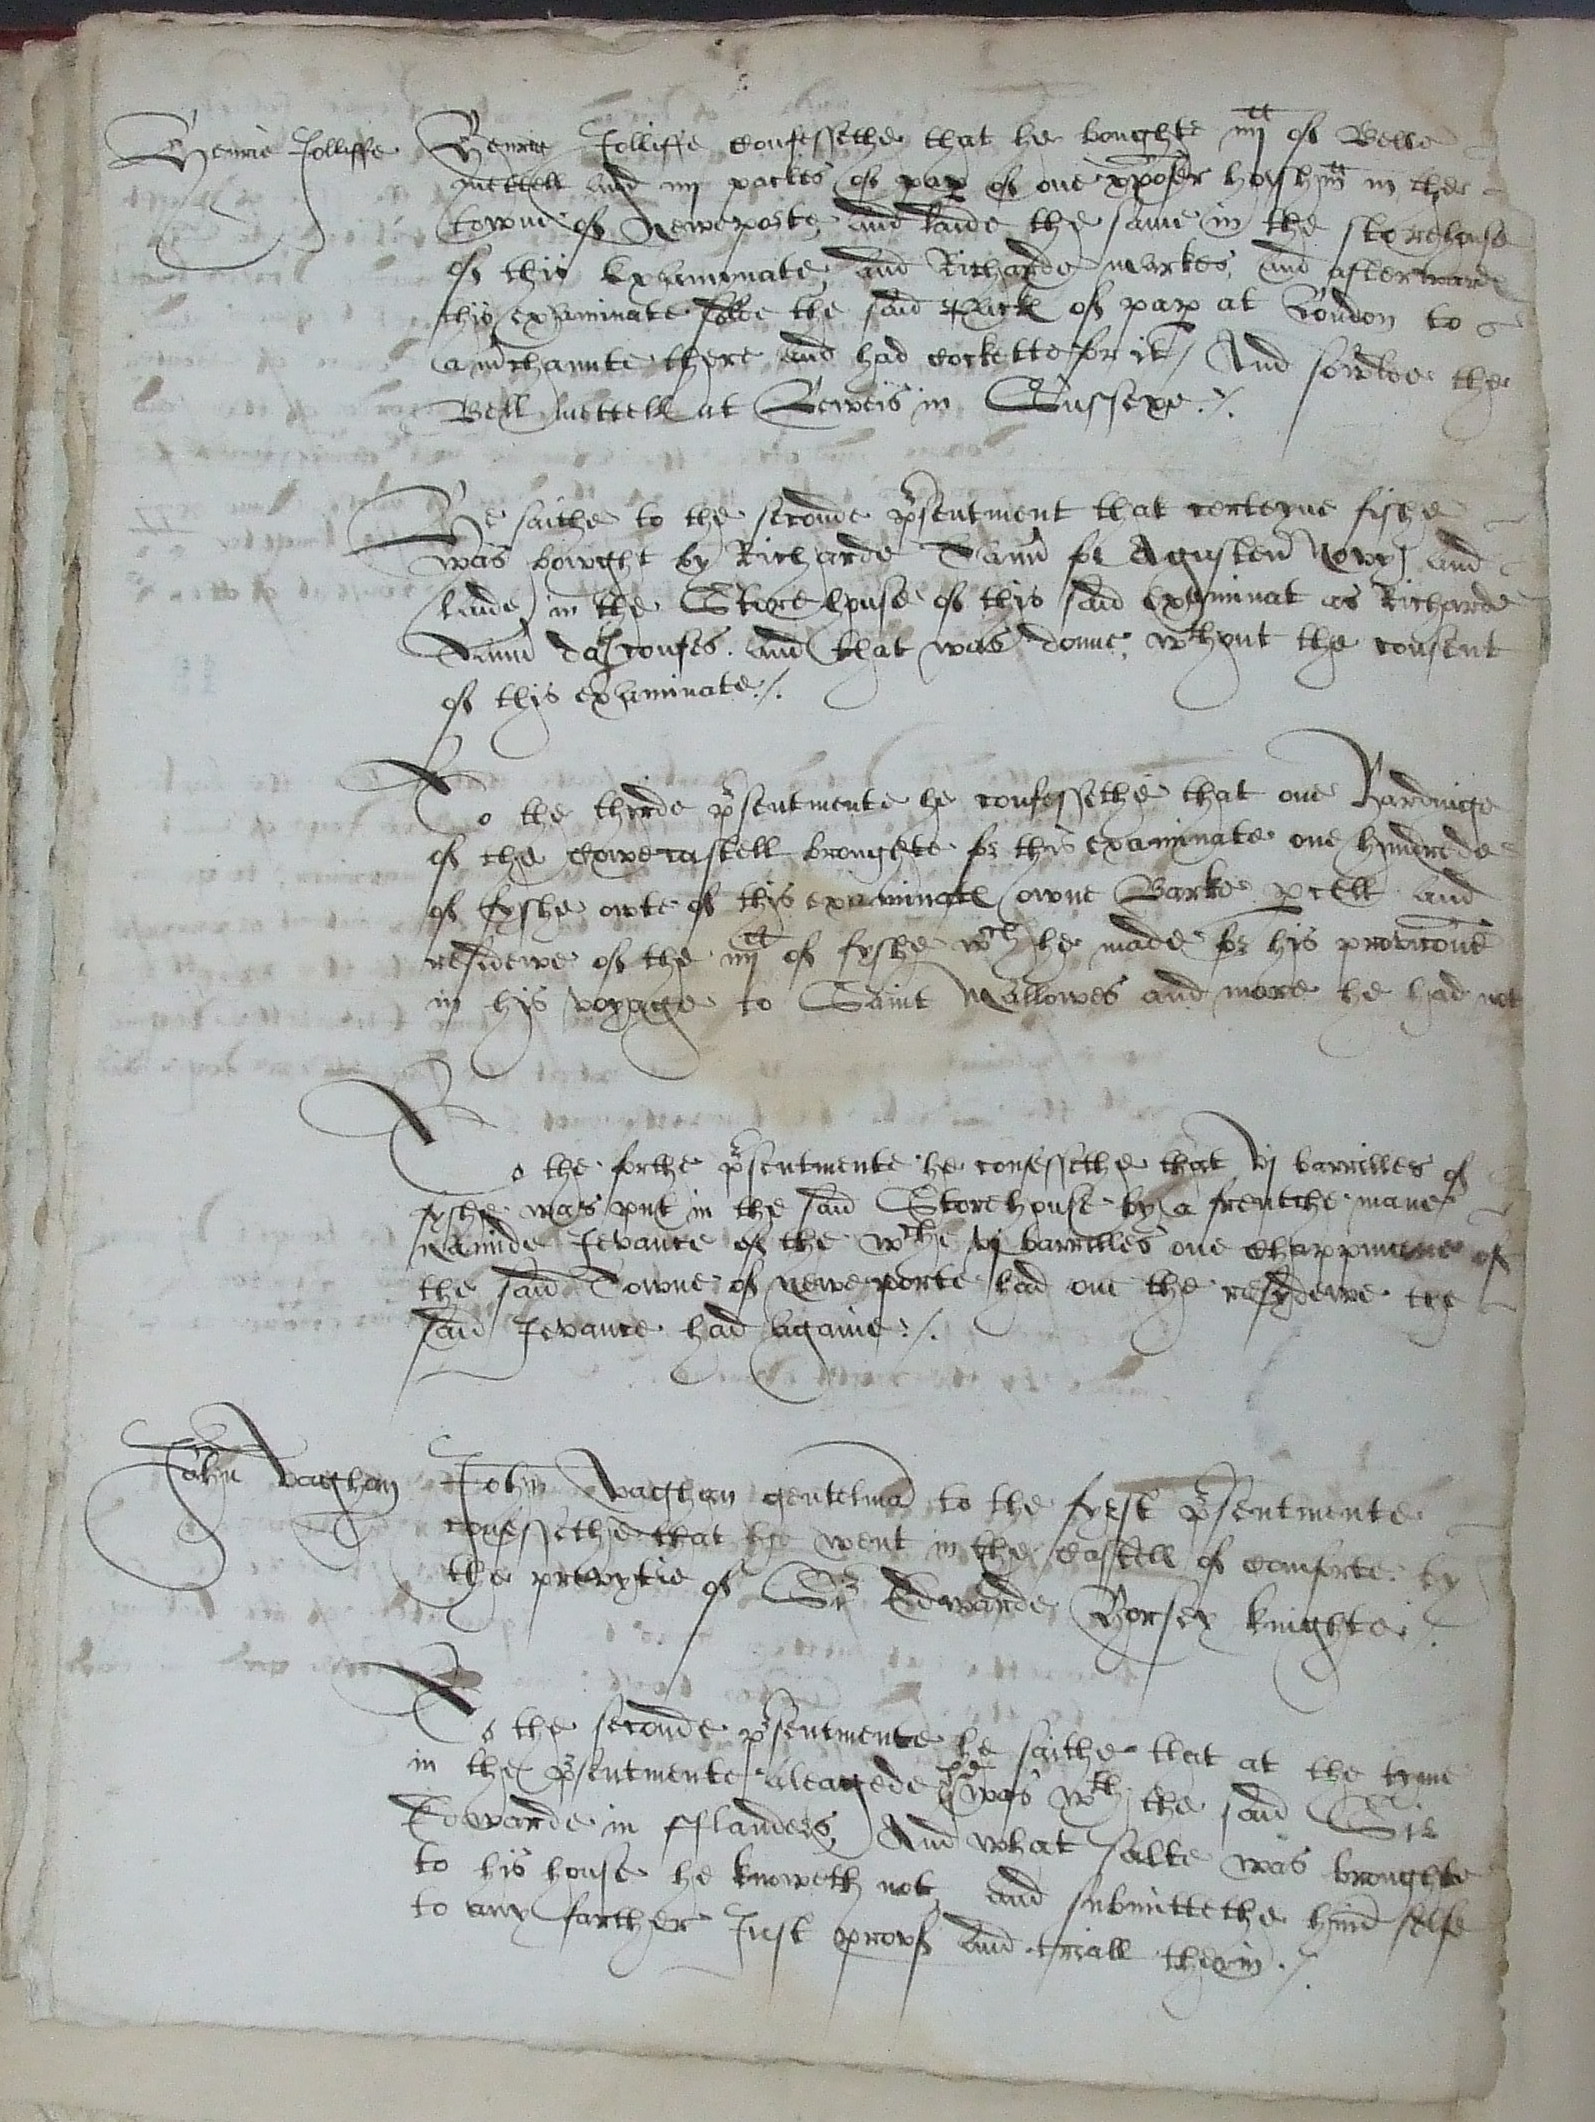 Henrie Jolliffe
Henrie Jolliffe confessethe that he boughte iiijC of Belle
mettell and iiij packes of pap of one xpofer in the
towne of Neweporte and laide the same in the storehouse
of this Examynate, and Richarde markes, and afterwarde
this examinate solde the said Pack of pap at London to
a mchaunte there and had cockette for it / And sowlde the
Bell mettell at Leweis in Sussexe ./.
He saithe to the seconde psentment that certeyne fishe
was bowght by Richarde for Agusten and
laide in the Store house of this said Examinat as Richarde
dothe confes. and that was donne, wthout the consent
of this examinate ./.
To the thirde psentmente he confessethe that one Hardinge
of the Cowe castell broughte for this examinate one hundrede
of fyshe owte of this examinate owne Barke pcell and
residewe of the iiijC of fyshe wch he made for his provicone
in his voyage to Saint Mallowes and more he had not
To the forthe psentmente he confessethe that vj barrilles of
fyshe was put in the said Storehouse by a frentche mane
namide Jevance of the wche vj barrilles one Chappmane of
the said Towne of neweporte had one the resydewe the
said Jevance had againe ./.
John Vaghan
John Vaghan gentelma to the fyrst psentmente
confessethe that he went in the Castell of Comforte by
the prevytie of Sr Edwarde Horsey knighte ./
To the seconde psentmente he saithe that at the tyme
in the psentmente aleagede he was wth the said Sir
Edwarde in fflanders, And what salte was broughte
to his house he knoweth not, and submittethe himself
to any farther Just proof and triall therin ./.